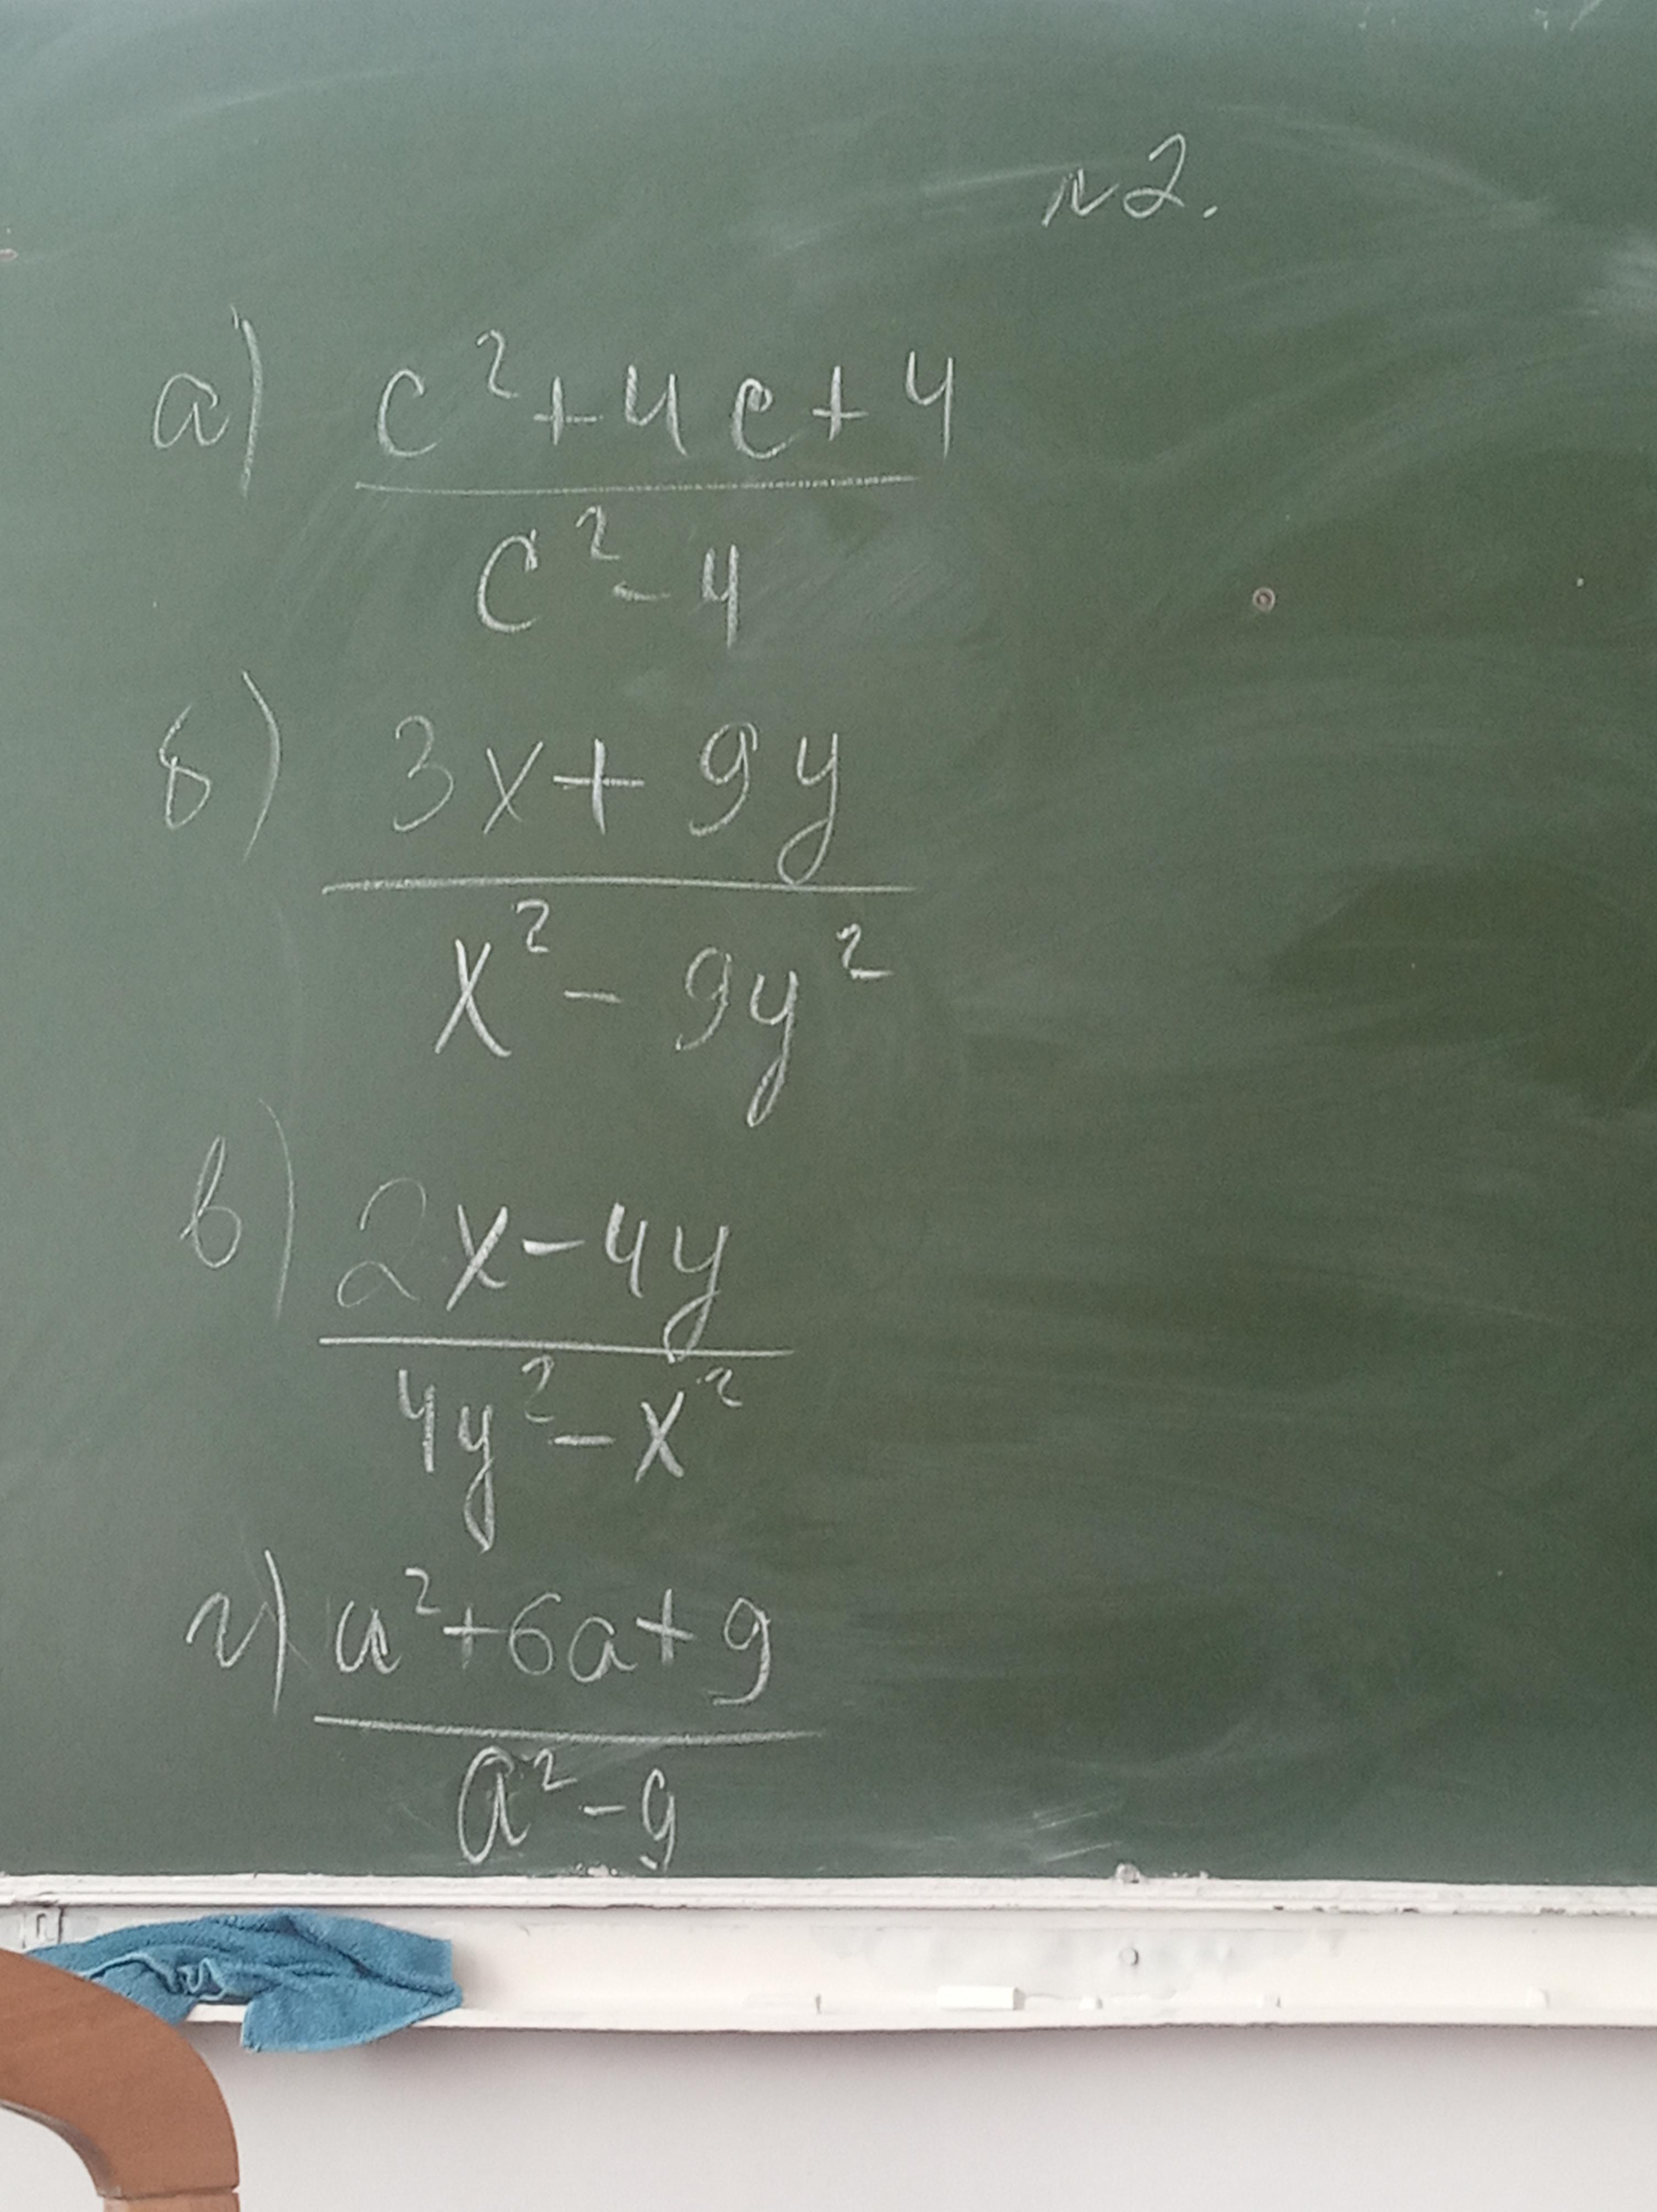 №2.
а) c²+4c+4
c²-4
б) 3x+9y
x²-9y²
в) 2x-4y
4y²-x²
г) a²+6a+9
a²-9